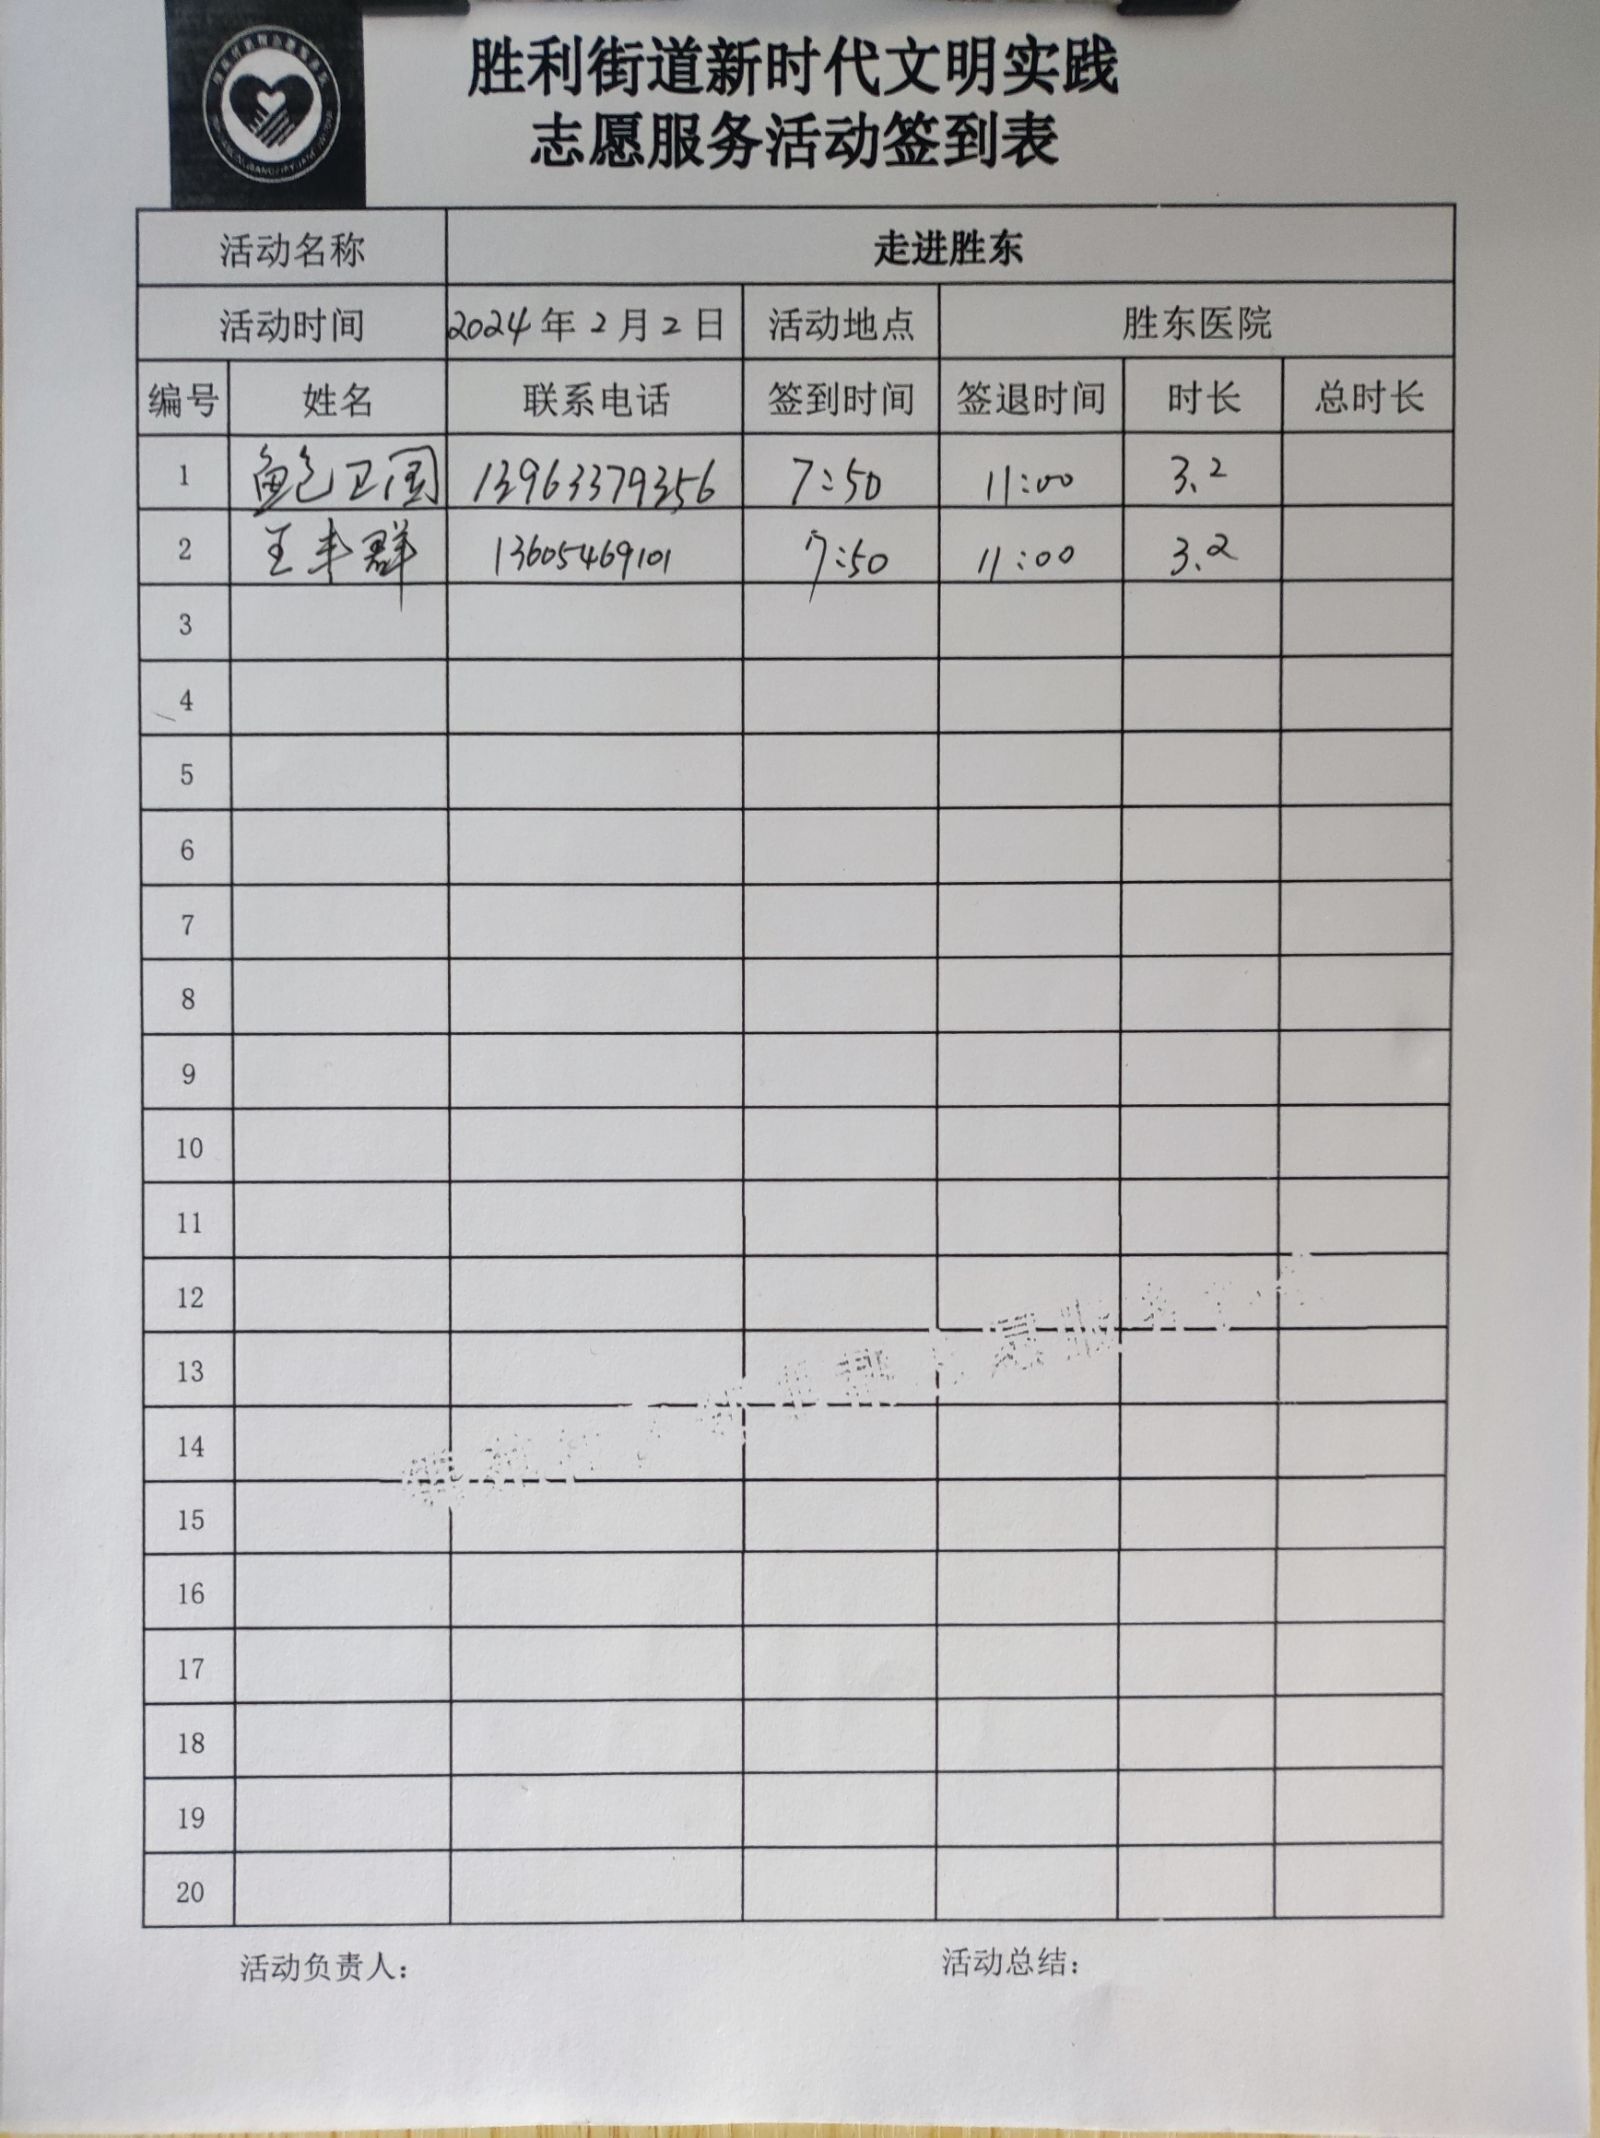 胜利街道新时代文明实践
志愿服务活动签到表
活动名称 走进胜东
活动时间 2024年2月2日 活动地点 胜东医院
编号 姓名 联系电话 签到时间 签退时间 时长 总时长
1 鲍卫国 13963379356 7:50 11:00 3.2
2 王丰群 13605469101 7:50 11:00 3.2
3
4
5
6
7
8
9
10
11
12
13
14
15
16
17
18
19
20
活动负责人： 活动总结：